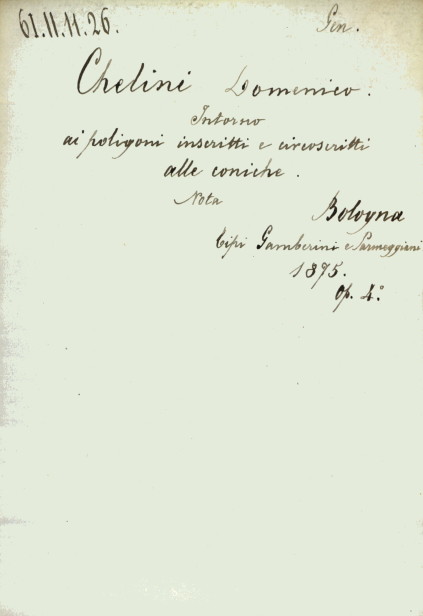 61.II.11.26.
Gen.
Chelini Domenico.
Intorno
ai poligoni inscritti e circoscritti
alle coniche.
Nota
Bologna
Tipi Gamberini e Parmeggiani
1875.
Op. 4.°